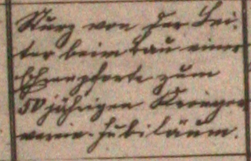 Sturz von der Lei-
ter beim Bau einer
Ehrenpforte zum
50 jährigen Krieger
verein-Jubiläum.